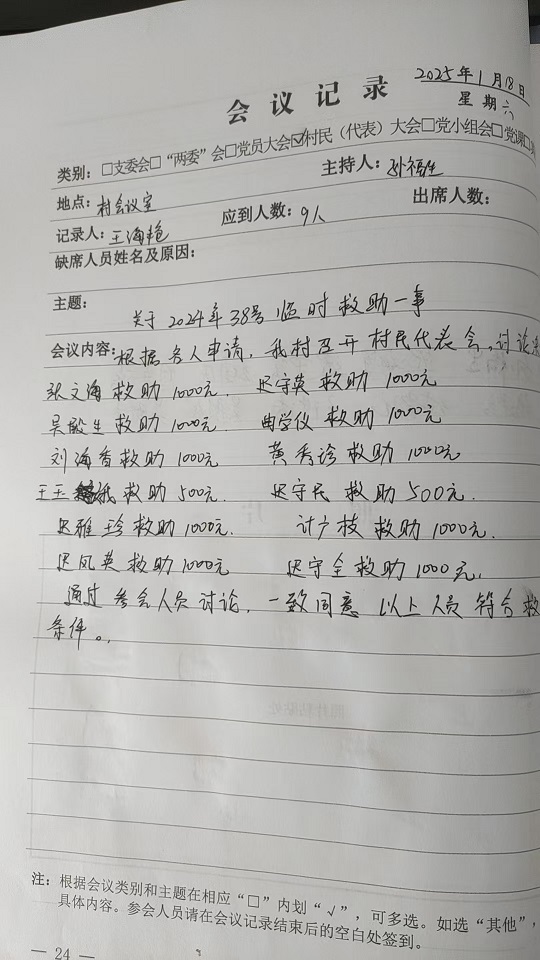 2025年1月18日
会议记录
星期六
类别：□支委会□“两委”会□党员大会☑村民（代表）大会□党小组会□党课□
地点：村会议室 主持人：孙福生
记录人：王海艳 应到人数：9人 出席人数：
缺席人员姓名及原因：
主题：关于2024年38号临时救助一事
会议内容：根据各人申请，我村召开村民代表会，讨论
张文海救助1000元． 迟守英救助1000元
吴殿生救助1000元 曲学仪救助1000元
刘海香救助1000元 黄秀诊救助1000元
王玉 救助500元． 迟守民救助500元．
迟雅珍救助1000元． 计广枝救助1000元．
迟凤英救助1000元 迟守全救助1000元．
通过参会人员讨论，一致同意以上人员符合救
条件。
注：根据会议类别和主题在相应“□”内划“√”，可多选。如选“其他”，
具体内容。参会人员请在会议记录结束后的空白处签到。
— 24 —